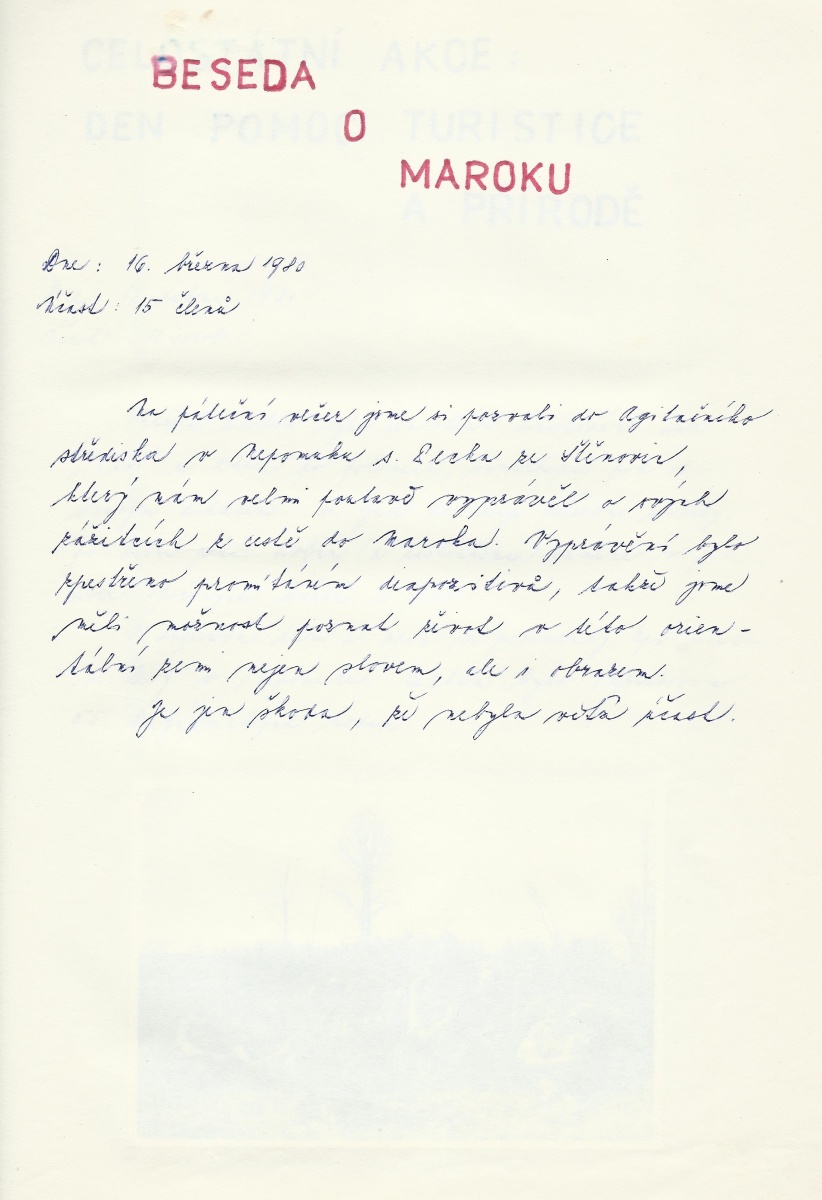 BESEDA
O
MAROKU
Dne: 16. března 1980
Účast: 15 členů
Na páteční večer jsme si pozvali do Agitačního
střediska v Nepomuku s. Lecha ze Štěnovic,
který nám velmi poutavě vyprávěl o svých
zážitcích z cestě do Maroka. Vyprávění bylo
zpestřeno promítáním diapozitivů, takže jsme
měli možnost poznat život v této orien-
tální zemi nejen slovem, ale i obrazem.
Je jen škoda, že nebyla větší účast.
CELOSTÁTNÍ AKCE:
DEN POMOCI TURISTICE
A PŘÍRODĚ